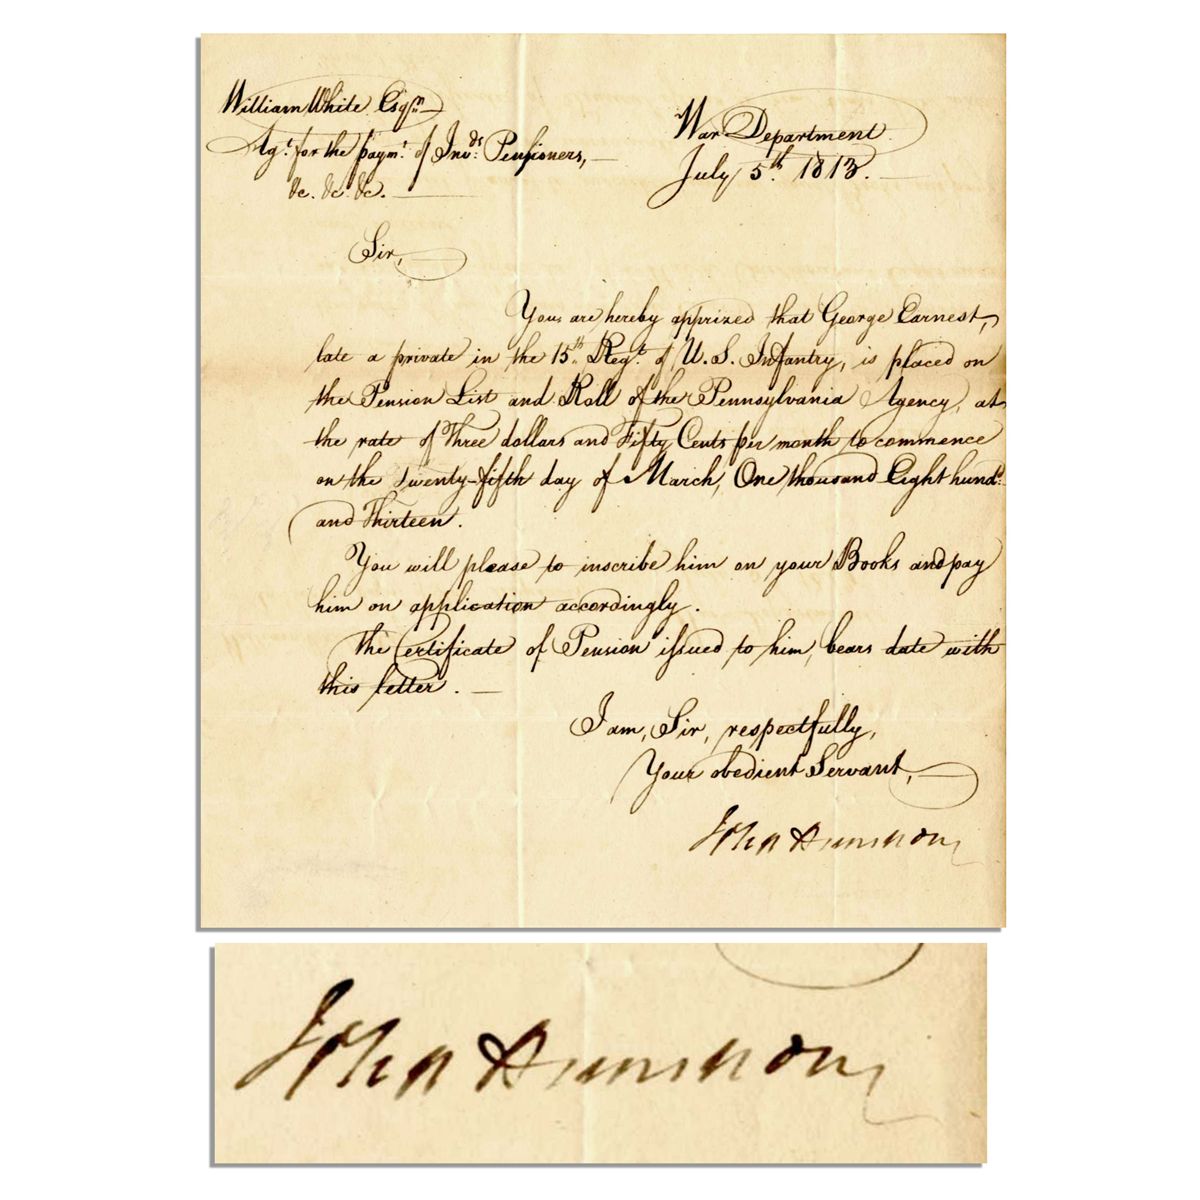 William White Esqr.
Agt. for the paymt. of Invds. Pensioners,
&c. &c. &c.
War Department
July 5th. 1813.
Sir,
You are hereby apprized that George Earnest,
late a private in the 15th. Regt. of U.S. Infantry, is placed on
the Pension List and Roll of the Pennsylvania Agency, at
the rate of Three dollars and Fifty Cents per month to commence
on the Twenty-fifth day of March, One thousand Eight hund.
and Thirteen.
You will please to inscribe him on your Books and pay
him on application accordingly.
The Certificate of Pension issued to him, bears date with
this letter.
I am, Sir, respectfully,
Your obedient Servant,
John Armstrong
John Armstrong